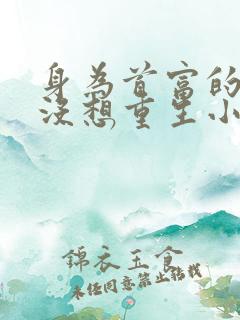 身为首富的
没想重生小
錦衣玉食
未经同意禁止转载